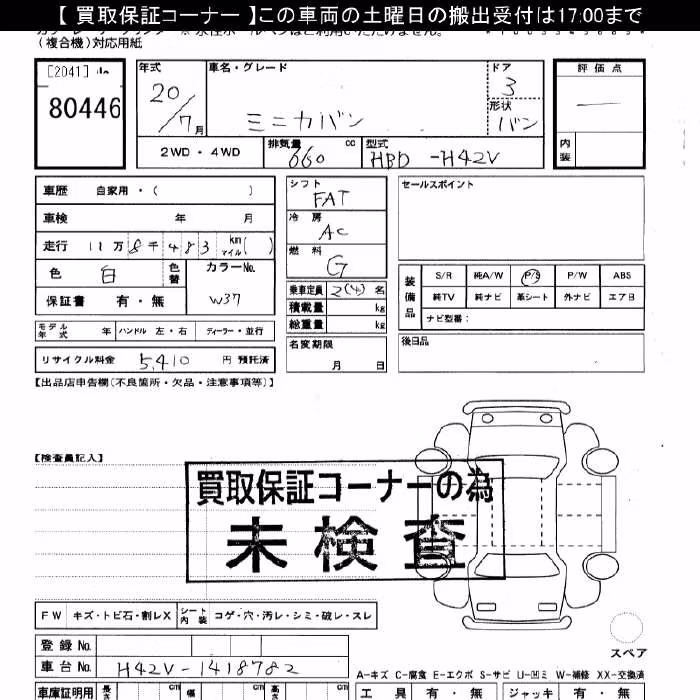 【 買取保証コーナー 】この車両の土曜日の搬出受付は17:00まで
(複合機)対応用紙
[2041]
80446
年式
20/7月
車名・グレード
ミニカバン
ドア
3
形状
バン
評価点
内装
2WD・4WD
排気量 660 cc
型式 HBD-H42V
車歴 自家用・( )
車検 年 月
走行 11万8千483 km マイル( )
色 白 色替 カラーNo. W37
保証書 有・無
シフト FAT
冷房 AC
燃料 G
乗車定員 2(4)名
積載量 kg
総重量 kg
名変期限 月 日
セールスポイント
装備品
S/R 純A/W P/S P/W ABS
純TV 純ナビ 革シート 外ナビ エアB
ナビ型番:
後日品
モデル年式 年 ハンドル 左・右 ディーラー・並行
リサイクル料金 5,410 円 預託済
【出品店申告欄(不良箇所・欠品・注意事項等)】
【検査員記入】
買取保証コーナーの為
未検査
FW キズ・トビ石・割レX シート内装 コゲ・穴・汚レ・シミ・破レ・スレ
登録 No.
車台 No. H42V-1418782
スペア
A-キズ C-腐食 E-エクボ S-サビ U-凹ミ W-補修 XX-交換済
車庫証明用 長さ cm 幅 cm 高さ cm
工具 有・無 ジャッキ 有・無